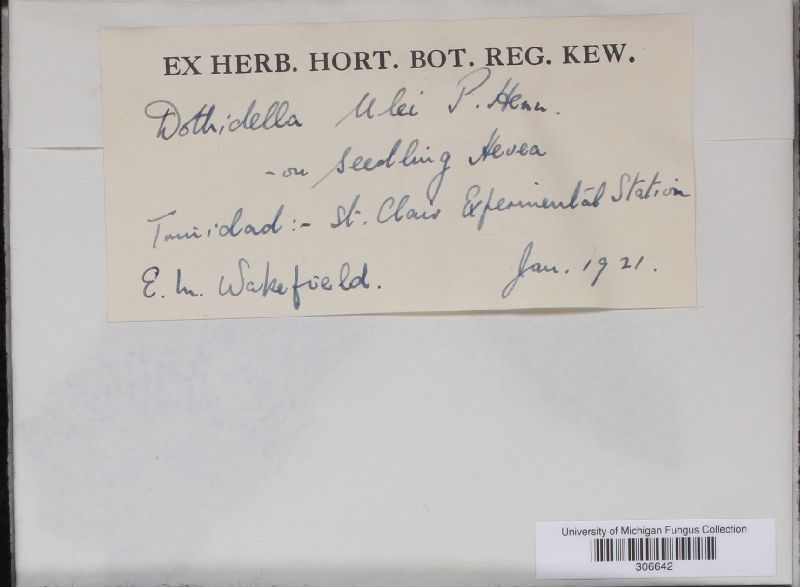 EX HERB. HORT. BOT. REG. KEW.
Dothidella Ulei P. Henn.
- on seedling Hevea
Trinidad :- St. Clair Experimental Station
E. M. Wakefield. Jan. 1921.
University of Michigan Fungus Collection
306642